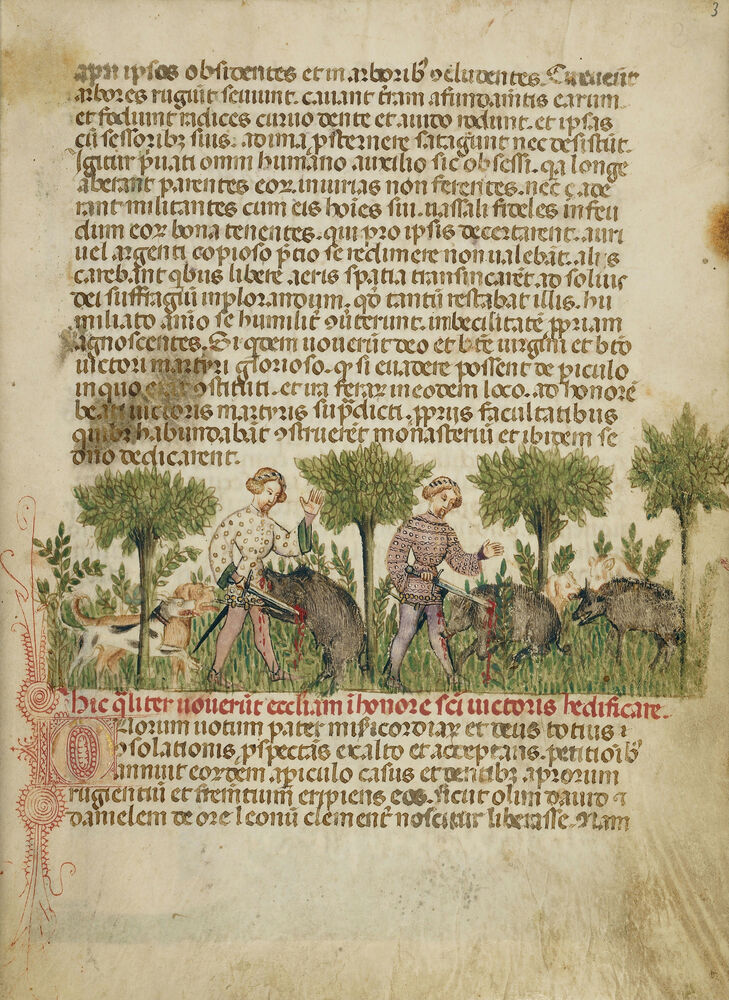 3
apri ipsos obsidentes et in arborib⁹ ꝯcludentes. Cuꝛꝛẽt
arbores rugiũt seuiunt. cauant t̃ram a fundam̃tis earum
et fodiunt radices curuo dente et auido rodunt. et ipsas
cũ sessoribꝫ suis. ad ima ꝓsternere satagunt nec desistũt.
Igitur p̃uati omni humano auxilio sic obsessi. qa longe
aberant parentes eoꝝ. iniurias non ferentes. nec ç ade
rant militantes cum eis hoĩes sui. uassali fideles in feu
dum eoꝝ bona tenentes. qui pro ipsis decertarent. auri
uel argenti copioso p̃cio se redimere non ualebãt. alis
carebant qbus libere aeris spatia transmearẽt. ad solius
dei suffragiũ inplorandum. qđ tantũ restabat illis. hu
miliato aĩo se humilit̃ ꝯũterunt. imbecilitatẽ ꝓpriam
agnoscentes. Si qdem uouerũt deo et bt̃e uirgini et bt̃o
uictori martyri glorioso. ꝙ si euadere possent de piculo
in quo erãt ꝯstituti. et ira feraꝝ in eodem loco. ad honorẽ
beati uictoris martyris sup̃dicti. ꝓpriis facultatibus
quibꝫ habundabãt ꝯstruerẽt monasteriũ et ibidem se
dño dedicarent.
hic q̃liter uouerũt eccl̃iam ĩ honore sc̃i uictoris hedificare.
Qorum uotum pater misicordiaꝝ et deus totius ꝯ
solationis, ꝓspectãs ex alto et acceptans. petitiõibꝫ
annuit eordem a piculo casus et dentibꝫ aprorum
rugientiũ et frem̃tium eripiens eos. sicut olim dauid ⁊
danielem de ore leonũ clement̃ noscitur liberasse. Nam